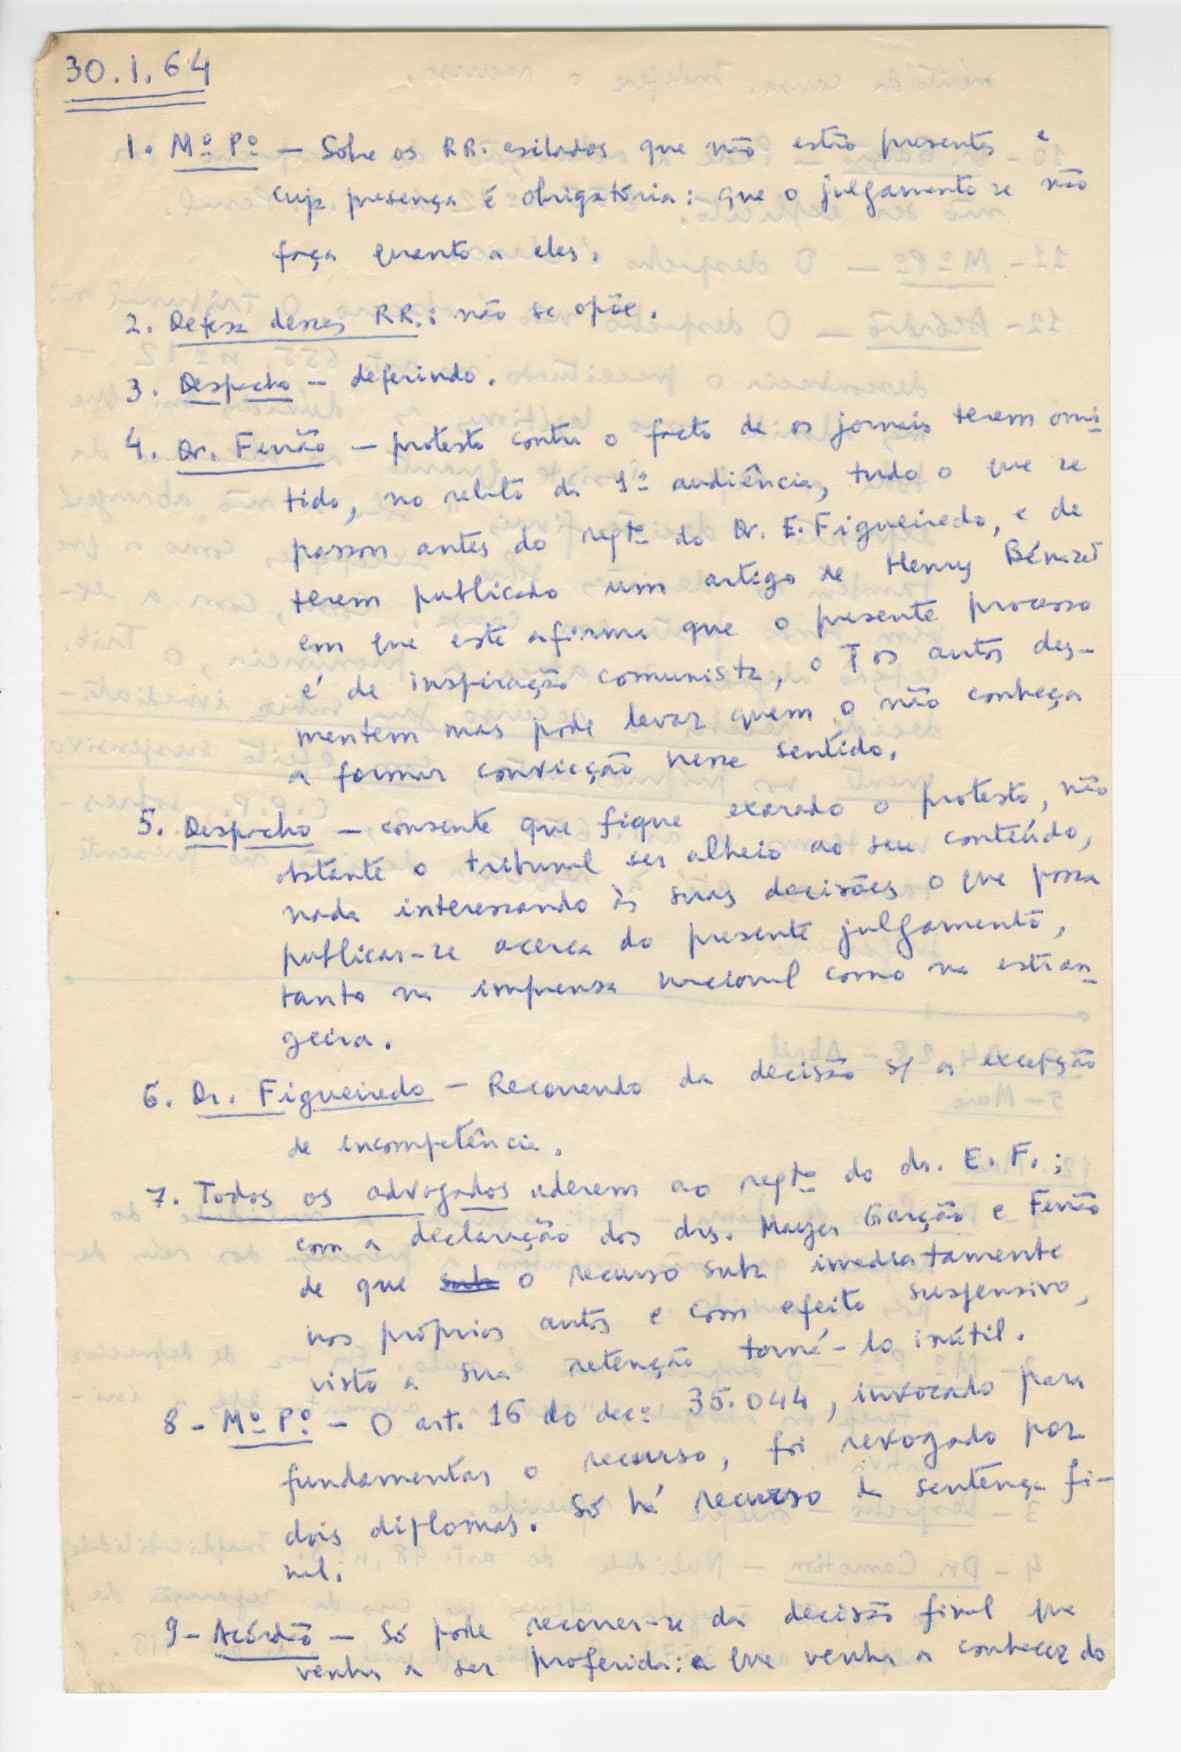 30.1.64
1. Mº Pº — Sobre os RR. exilados que não estão presentes e
cuja presença é obrigatória: que o julgamento se não
faça quanto a eles.
2. Defesa desses RR.: não se opõe.
3. Despacho — deferindo.
4. Dr. Ferrão — protesto contra o facto de os jornais terem omi-
tido, no relato da 1ª audiência, tudo o que se
passou antes do reptº do Dr. E. Figueiredo, e de
terem publicado um artigo de Henry Bénazet
em que este afirma que o presente processo
é de inspiração comunista, o q os autos des-
mentem mas pode levar quem o não conheça
a formar convicção nesse sentido.
5. Despacho — consente que fique exarado o protesto, não
obstante o tribunal ser alheio ao seu conteúdo,
nada interessando às suas decisões o que possa
publicar-se acerca do presente julgamento,
tanto na imprensa nacional como na estran-
geira.
6. Dr. Figueiredo — Recorrendo da decisão s/ a excepção
de incompetência.
7. Todos os advogados aderem ao reptº do dr. E. F.;
com a declaração dos drs. Mayer Garção e Ferrão
de que suba o recurso suba imediatamente
nos próprios autos e com efeito suspensivo,
visto a sua retenção torná-lo inútil.
8 - Mº Pº — O art. 16 do decº 35.044, invocado para
fundamentar o recurso, foi revogado por
dois diplomas. Só há recurso da sentença fi-
nal.
9 - Acórdão — Só pode recorrer-se da decisão final que
venha a ser proferida: a que venha a conhecer do